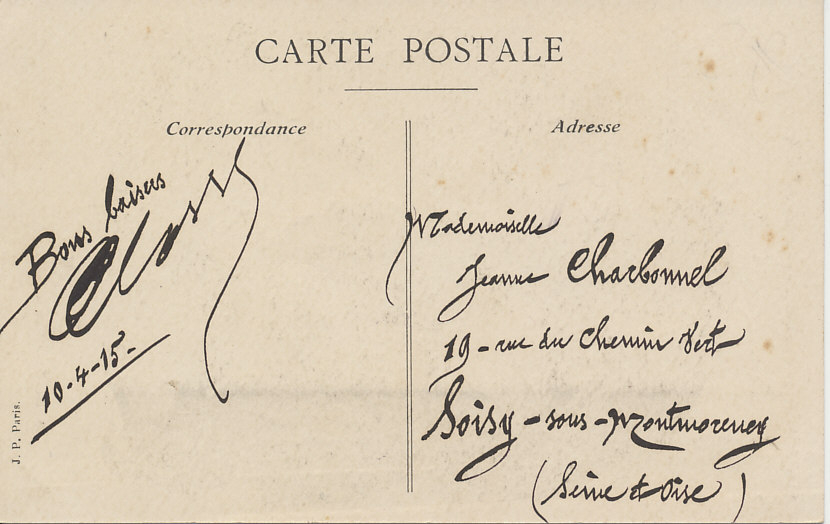 CARTE POSTALE
Correspondance
Bons baisers
10-4-15-
J. P. Paris.
Adresse
Mademoiselle
Jeanne Charbonnel
19 - rue du Chemin Vert
Soisy - sous - Montmorency
(Seine et Oise)